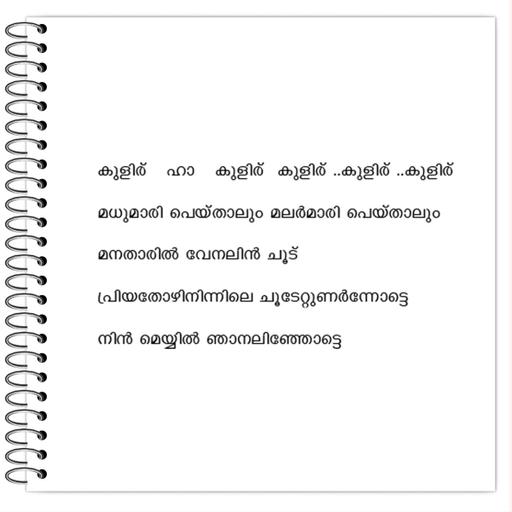 കുളിര് ഹാ കുളിര് കുളിര് ..കുളിര് ..കുളിര്
മധുമാരി പെയ്താലും മലർമാരി പെയ്താലും
മനതാരിൽ വേനലിൻ ചൂട്
പ്രിയതോഴിനിന്നിലെ ചൂടേറ്റുണർന്നോട്ടെ
നിൻ മെയ്യിൽ ഞാനലിഞ്ഞോട്ടെ